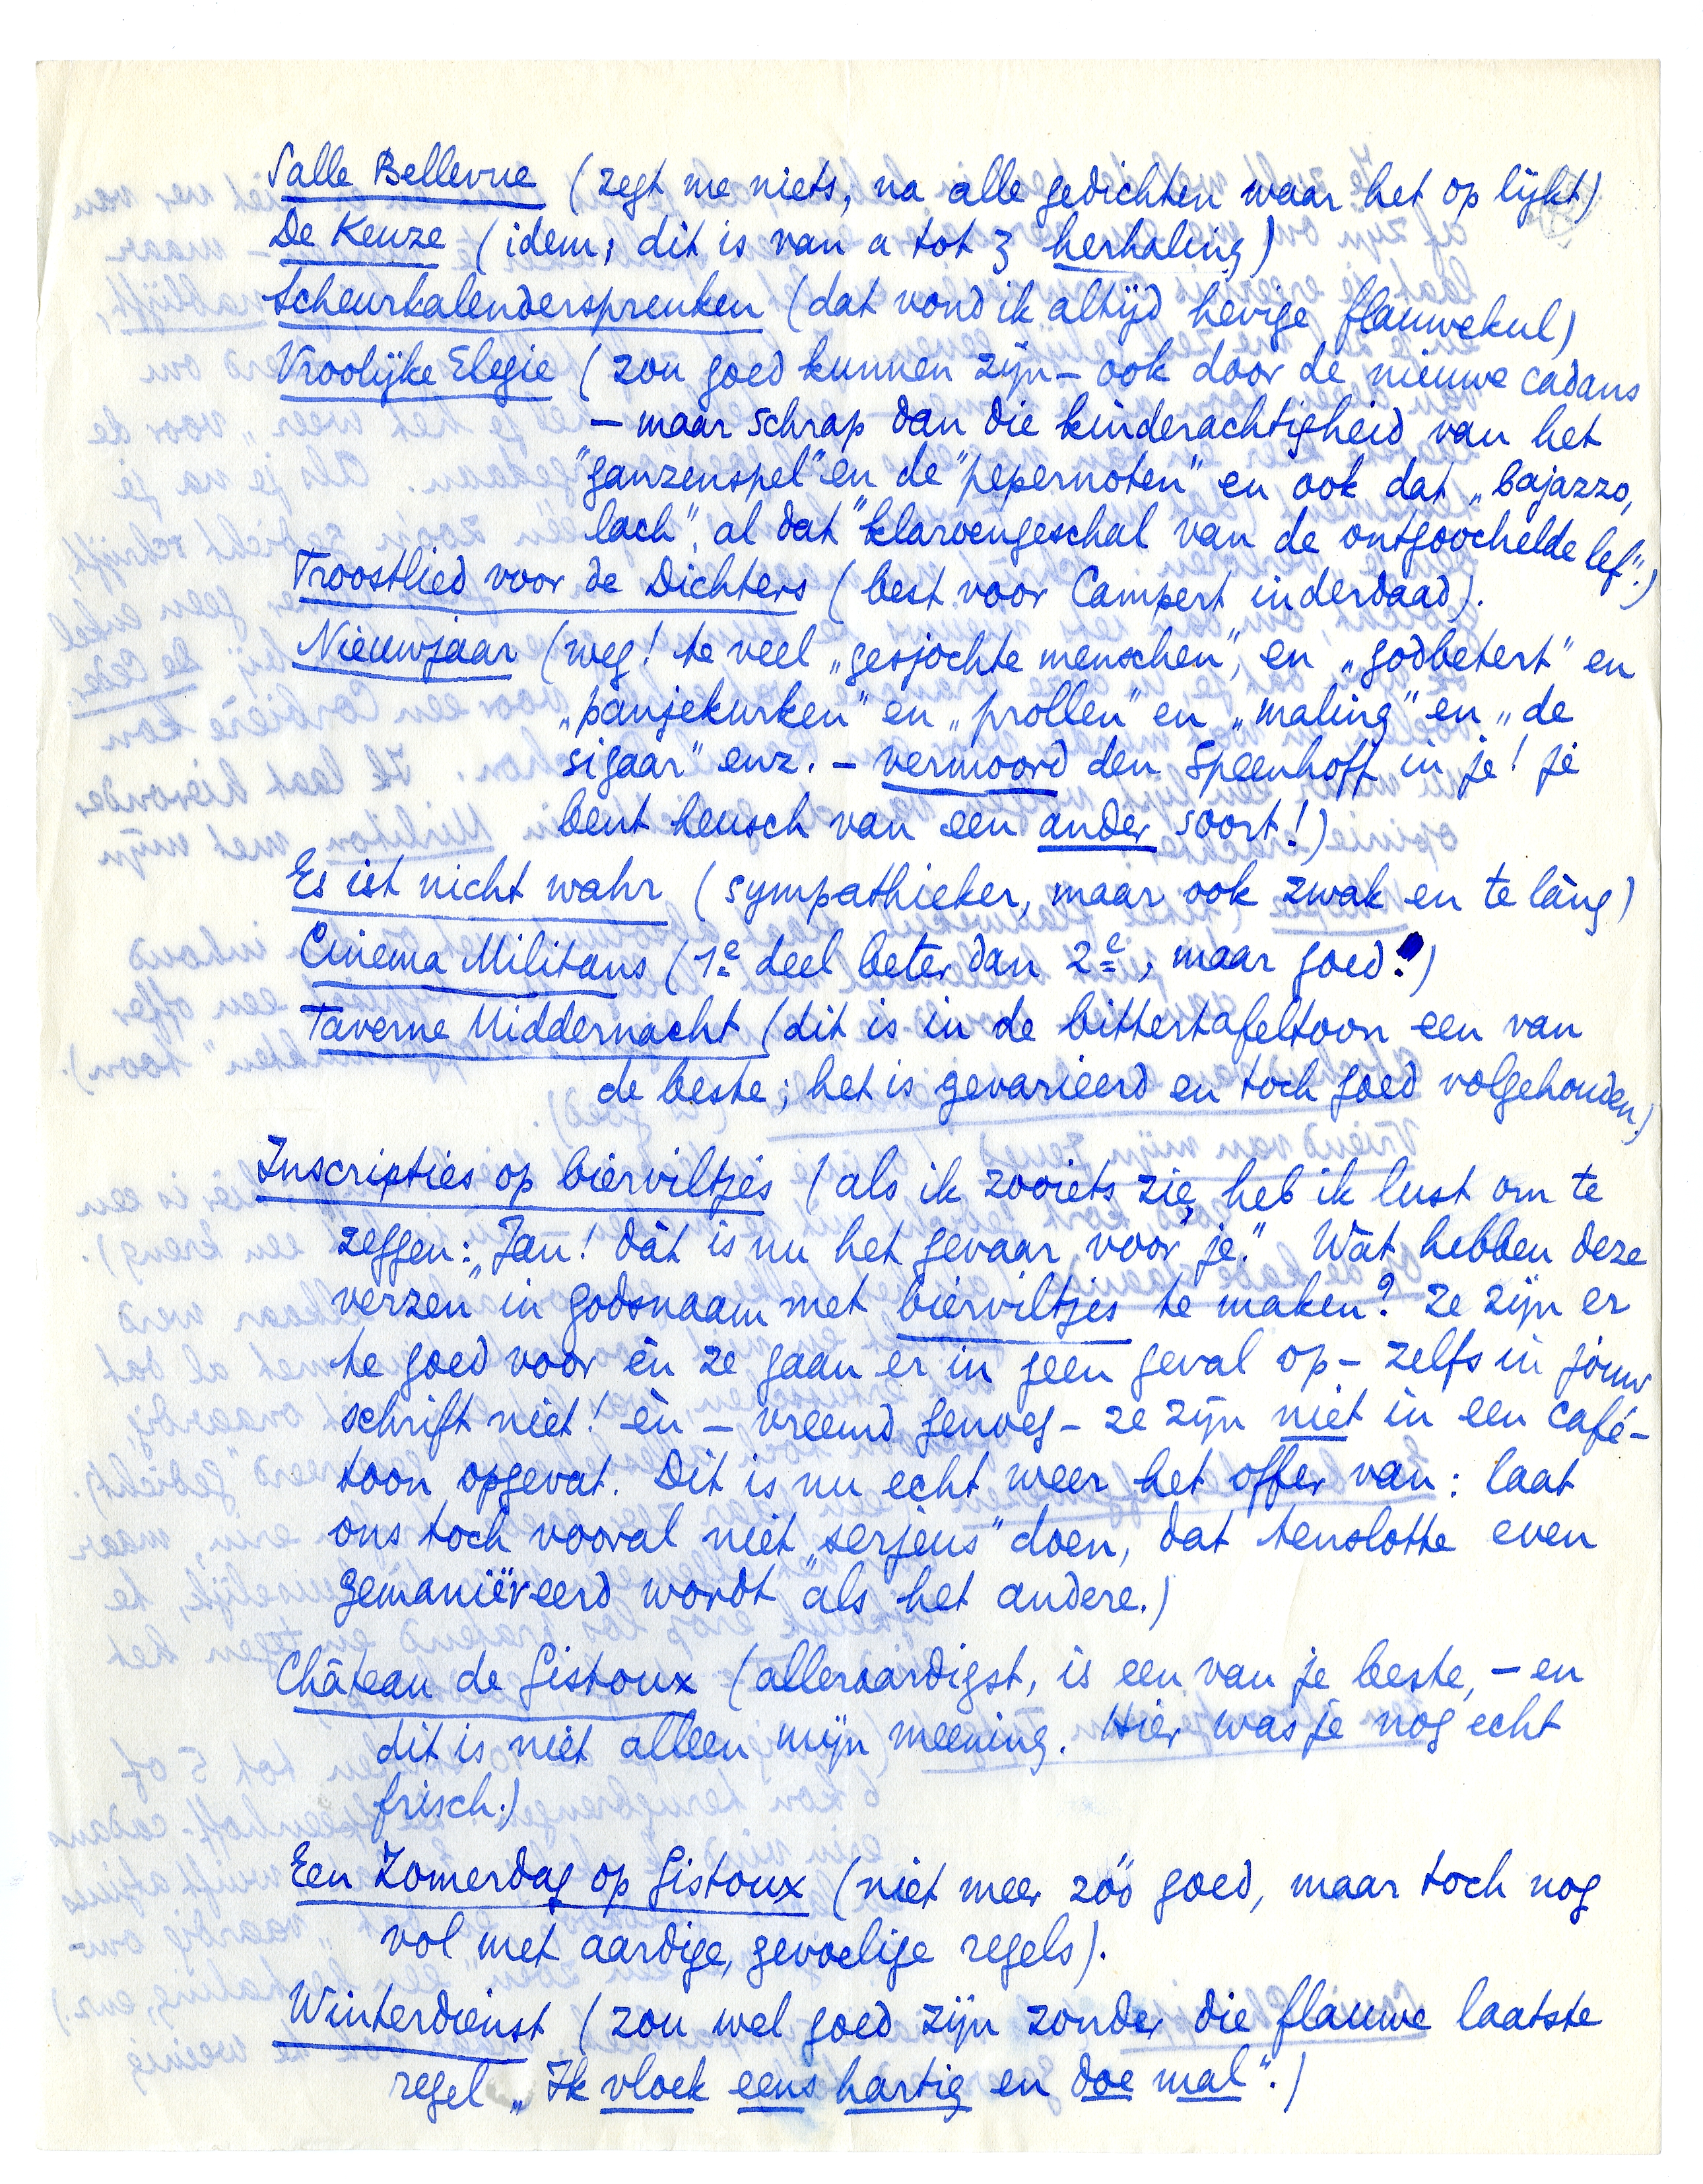 Salle Bellevue (zegt me niets, na alle gedichten waar het op lijkt)
De Keuze (idem; dit is van a tot z herhaling)
Scheurkalenderspreuken (dat vond ik altijd hevige flauwekul)
Vroolijke Elegie (zou goed kunnen zijn – ook door de nieuwe cadans
– maar schrap dan die kinderachtigheid van het
"ganzenspel" en de "pepernoten" en ook dat „bajazzo,
lach", al dat "klaroengeschal van de ontgoochelde lef".)
Troostlied voor de Dichters (best voor Campert inderdaad).
Nieuwjaar (weg! te veel „gesjochte menschen", en „godbetert" en
„panjekurken" en „prollen" en „maling" en „de
sigaar" enz. – vermoord den Speenhoff in je! je
bent heusch van een ander soort!)
Es ist nicht wahr (sympathieker, maar ook zwak en te lang)
Cinema Militans (1e deel beter dan 2e, maar goed!)
Taverne Middernacht (dit is in de bittertafeltoon een van
de beste; het is gevarieerd en toch goed volgehouden.)
Inscripties op bierviltjes (als ik zooiets zie, heb ik lust om te
zeggen: „Jan! dàt is nu het gevaar voor je." Wàt hebben deze
verzen in godsnaam met bierviltjes te maken? Ze zijn er
te goed voor èn ze gaan er in geen geval op – zelfs in jouw
schrift niet! èn – vreemd genoeg – ze zijn niet in een café-
toon opgevat. Dit is nu echt weer het offer van: laat
ons toch vooral niet „serjeus" doen, dat tenslotte even
gemaniëreerd wordt als het andere.)
Château de Gistoux (alleraardigst, is een van je beste, – en
dit is niet alleen mijn meening. Hier was je nog echt
frisch.)
Een Zomerdag op Gistoux (niet meer zóó goed, maar toch nog
vol met aardige, gevoelige regels).
Winterdienst (zou wel goed zijn zonder die flauwe laatste
regel „Ik vloek eens hartig en doe mal".)